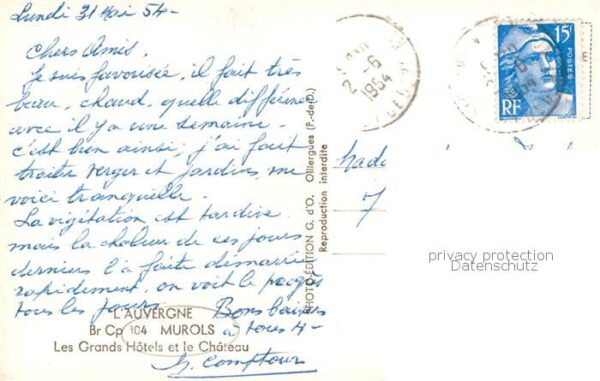 Lundi 31 Mai 54-
Chers Amis.
Je suis favorisée, il fait très
beau, chaud, quelle différence
avec il y a une semaine.
c'est bien ainsi; j'ai fait
traiter verger et jardins, me
voici tranquille.
La végitation est tardive
mais la chaleur de ces jours
derniers l'a faite démarrer
rapidement, on voit le progès
tous les jours. Bons baisers
à tous 4-
L'AUVERGNE
Br Cp 304 MUROLS
Les Grands Hôtels et le Château
PHOTO-ÉDITION G. d'O. Olliergues (P.-de-D.)
Reproduction interdite
2 -6
1954
15F
POSTES
RF
7
privacy protection
Datenschutz